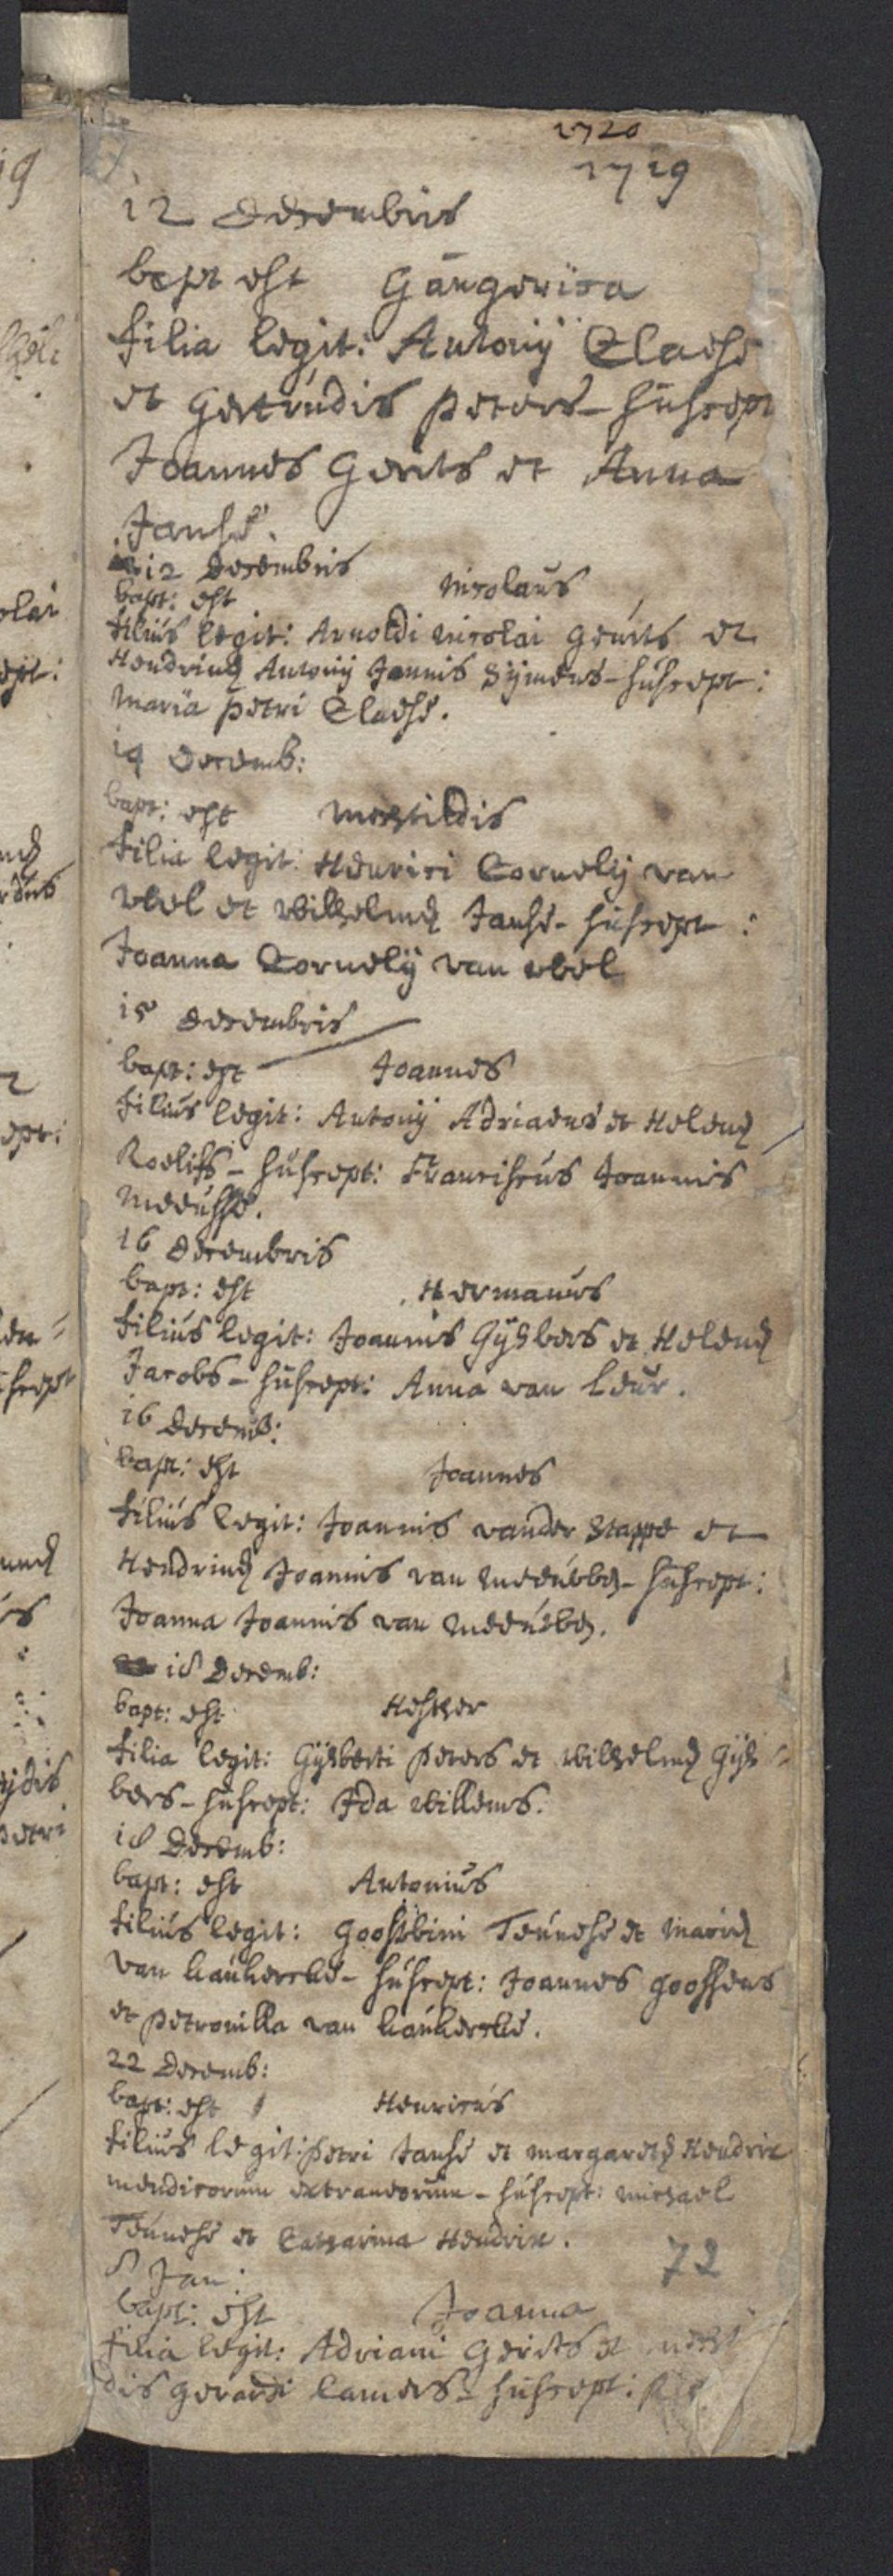 1720
1719
12 Decembris
bapt est Gangerica
filia legit: Antonij Claesse
et Gertrudis Peters - suscept
Joannes Gerits et Anna
Janse.
12 Decembris
bapt: est Nicolaus
filius legit: Arnoldi Nicolai Geurts et
Hendrinę Antonij Jannis Sijmens - suscept:
Maria Petri Claesse.
14 Decemb:
bapt: est Mechtildis
filia legit: Henrici Cornelij van
Wel et Wilhelmę Janse - suscept:
Joanna Cornelij van Wel
15 Decembris
bapt: est Joannes
filius legit: Antonij Adriaens et Helenę
Roelifs - suscept: Franciscus Joannis
Meeusse.
16 Decembris
bapt: est Hermanus
filius legit: Joannis Gijsbers et Helenę
Jacobs - suscept: Anna van Leur.
16 Decemb:
bapt: est Joannes
filius legit: Joannis vander Stappe et
Hendrinę Joannis van - suscept:
Joanna Joannis van
18 Decemb:
bapt: est Hesther
filia legit: Gijsberti Peters et Wilhelmę Gijs=
bers - suscept: Ida Willems.
18 Decemb:
bapt: est Antonius
filius legit: Gooswini Teunesse et Marię
van - suscept: Joannes Goossens
et Petronilla van
22 Decemb:
bapt: est Henricus
filius legit: Petri Janse et Margaretę Hendrix
mendicorum extraneorum - suscept: Michael
Teunesse et Catharina Hendrix.
72
8 Jan:
bapt: est Joanna
filia legit: Adriani Gerits et
dis Gerardi Lamers - suscept: